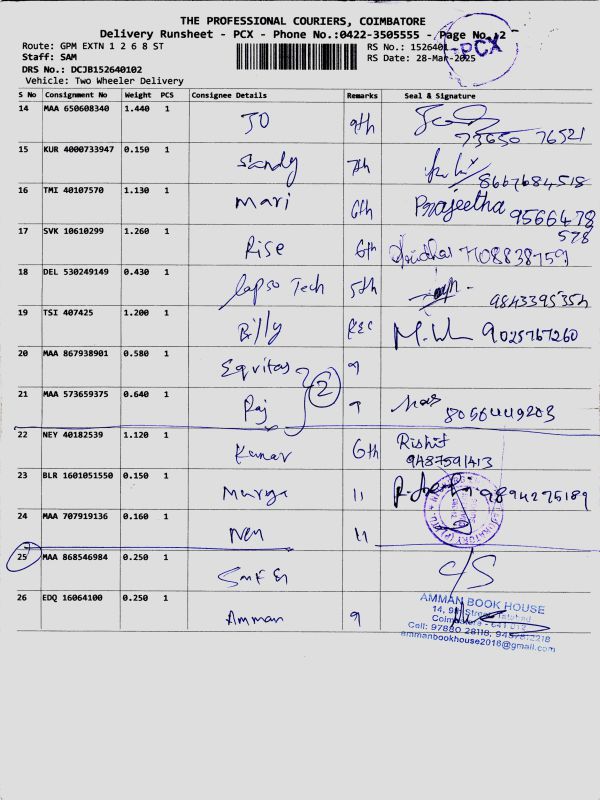 THE PROFESSIONAL COURIERS, COIMBATORE
Delivery Runsheet - PCX - Phone No.:0422-3505555 - Page No. 2
Route: GPM EXTN 1 2 6 8 ST
RS No.: 1526401
PCX
Staff: SAM
RS Date: 28-Mar-2025
DRS No.: DCJB152640102
Vehicle: Two Wheeler Delivery
S No Consignment No Weight PCS Consignee Details Remarks Seal & Signature
14 MAA 650608340 1.440 1 JO 9th 73650 76521
15 KUR 4000733947 0.150 1 Sandy 7th 8667684518
16 TMI 40107570 1.130 1 Mari 6th Prajeetha 9566478
578
17 SVK 10610299 1.260 1 Rise 6th Sridhar 7708838759
18 DEL 530249149 0.430 1 Lapso Tech 5th 9843395354
19 TSI 407425 1.200 1 Billy REC 9025767260
20 MAA 867938901 0.580 1 Equitas 9
2
21 MAA 573659375 0.640 1 Raj 9 8056449203
22 NEY 40182539 1.120 1 Kumar 6th Rishit
9487591413
23 BLR 1601051550 0.150 1 Murya 11 9894275189
24 MAA 707919136 0.160 1 New 11
25 MAA 868546984 0.250 1 C/S
26 EDQ 16064100 0.250 1 Amman 9
AMMAN BOOK HOUSE
14, 9th Street, Tatabad
Coimbatore - 641 012
Cell: 97880 28118,
ammanbookhouse2016@gmail.com